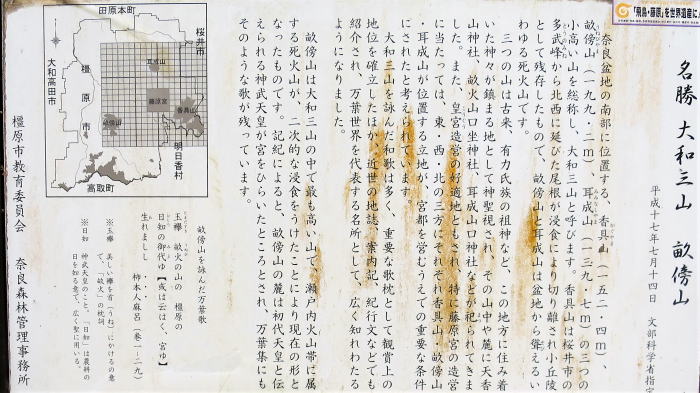 「飛鳥・藤原」を世界遺産に
名勝 大和三山 畝傍山
平成十七年七月十四日 文部科学省指定
奈良盆地の南部に位置する、香具山(一五二・四m)、
畝傍山(一九九・二m)、耳成山(一三九・七m)の三つの
小高い山を総称し、大和三山と呼びます。香具山は桜井市の
多武峰から北西に延びた尾根が浸食により切り離され小丘陵
として残存したもので、畝傍山と耳成山は盆地から聳えるい
わゆる死火山です。
三つの山は古来、有力氏族の祖神など、この地方に住み着
いた神々が鎮まる地として神聖視され、その山中や麓に天香
山神社、畝火山口坐神社、耳成山口神社などが祀られてきま
した。また、皇宮造営の好適地ともされ、特に藤原宮の造営
に当たっては、東・西・北の三方にそれぞれ香具山、畝傍山
・耳成山が位置する立地が、宮都を営むうえでの重要な条件
にされたと考えられています。
大和三山を詠んだ和歌は多く、重要な歌枕として観賞上の
地位を確立したほか、近世の地誌、案内記、紀行文などでも
紹介され、万葉世界を代表する名所として、広く知れわたる
ようになりました。
畝傍山は大和三山の中で最も高い山で、瀬戸内火山帯に属
する死火山が、二次的な浸食をうけたことにより現在の形と
なったものです。記紀によると、畝傍山の麓は初代天皇と伝
えられる神武天皇が宮をひらいたところとされ、万葉集にも
そのような歌が残っています。
畝傍山を詠んだ万葉歌
玉襷 畝火の山の 橿原の
日知の御代ゆ【或は云はく、宮ゆ】
生れましし ・・・
柿本人麻呂(巻一-二九)
※玉襷 美しい襷を首(うね)にかけるの意で、「畝火」の枕詞。
※日知 神武天皇のこと。「日知」は農耕の日を知る意で、広く聖に用いる。
橿原市教育委員会 奈良森林管理事務所
田原本町
桜井市
大和高田市
橿原市
耳成山
藤原宮
香具山
畝傍山
明日香村
高取町